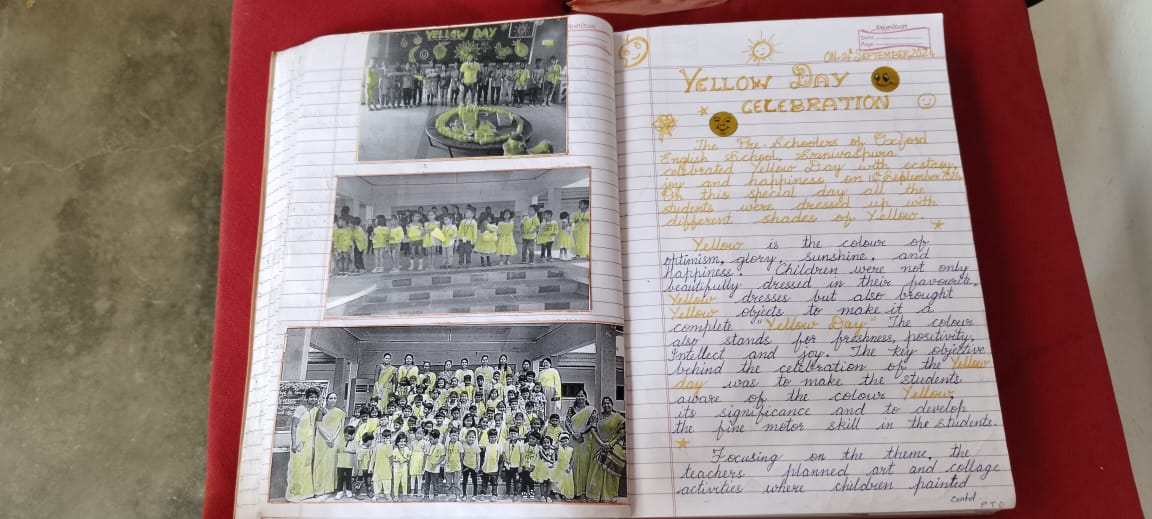 YELLOW DAY
Date
Page
ON-14th SEPTEMBER, 2024
YELLOW DAY
CELEBRATION
The Pre-Schoolers of Oxford
English School, Srinivaspura
celebrated Yellow Day with ecstasy,
joy and happiness on 14th September 2024.
On this special day all the
students were dressed up with
different shades of Yellow.
Yellow is the colour of
optimism, glory, sunshine, and
happiness. Children were not only
beautifully dressed in their favourite
Yellow dresses but also brought
Yellow objects to make it a
complete "Yellow Day." The colour
also stands for freshness, positivity,
Intellect and joy. The key objective
behind the celebration of the Yellow
day was to make the students
aware of the colour Yellow,
its significance and to develop
the fine motor skill in the students.
Focusing on the theme, the
teachers planned art and collage
activities where children painted
contd
P T O